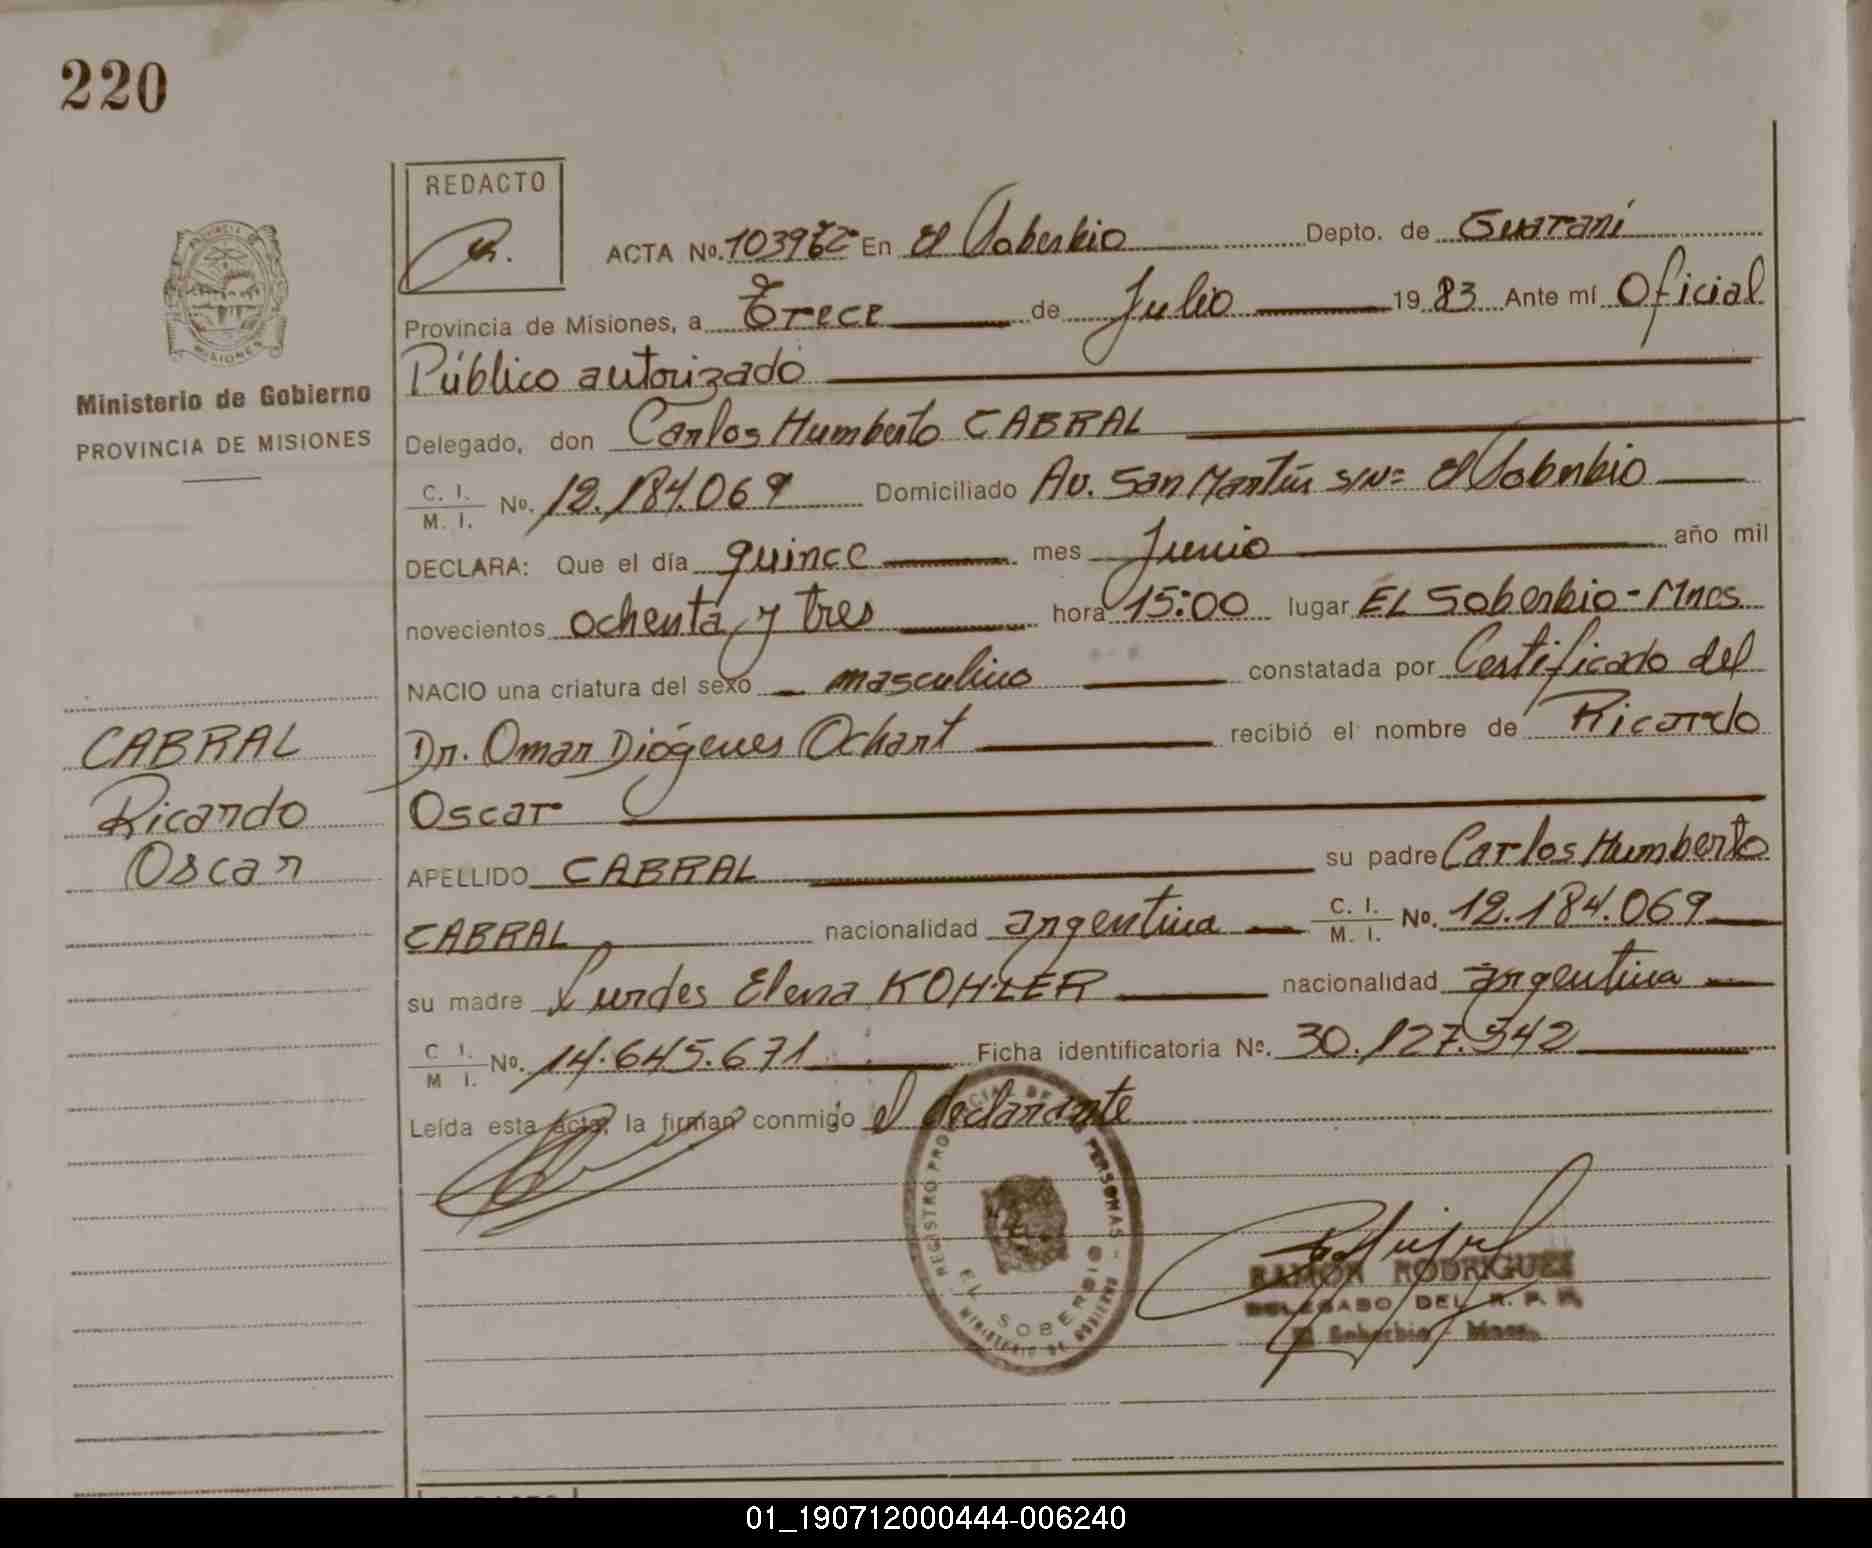 220
REDACTO
ACTA No. En El Soberbio Depto. de Guaraní
Provincia de Misiones, a Trece de Julio 19 83 Ante mí Oficial
Público autorizado
Ministerio de Gobierno
PROVINCIA DE MISIONES
Delegado, don Carlos Humberto CABRAL
C. I. M. I. No. 12.184.069 Domiciliado Av. San Martín S/Nº El Soberbio
DECLARA: Que el día quince mes Junio año mil
novecientos ochenta y tres hora 15:00 lugar EL Soberbio - Mnes
NACIO una criatura del sexo masculino constatada por Certificado del
Dr. Omar Diógenes Ochart recibió el nombre de Ricardo
Oscar
CABRAL
Ricardo
Oscar
APELLIDO CABRAL su padre Carlos Humberto
CABRAL nacionalidad argentina C. I. M. I. No. 12.184.069
su madre Lurdes Elena KOHLER nacionalidad argentina
C I. M I. No. 14.645.671 Ficha identificatoria No. 30.127.542
Leída esta acta, la firman conmigo el declarante
REGISTRO PROVINCIAL DE PERSONAS
EL SOBERBIO
MINISTERIO DE GOBIERNO
RAMON RODRIGUEZ
DELEGADO DEL R. P. P.
El Soberbio - Mnes.
01_190712000444-006240